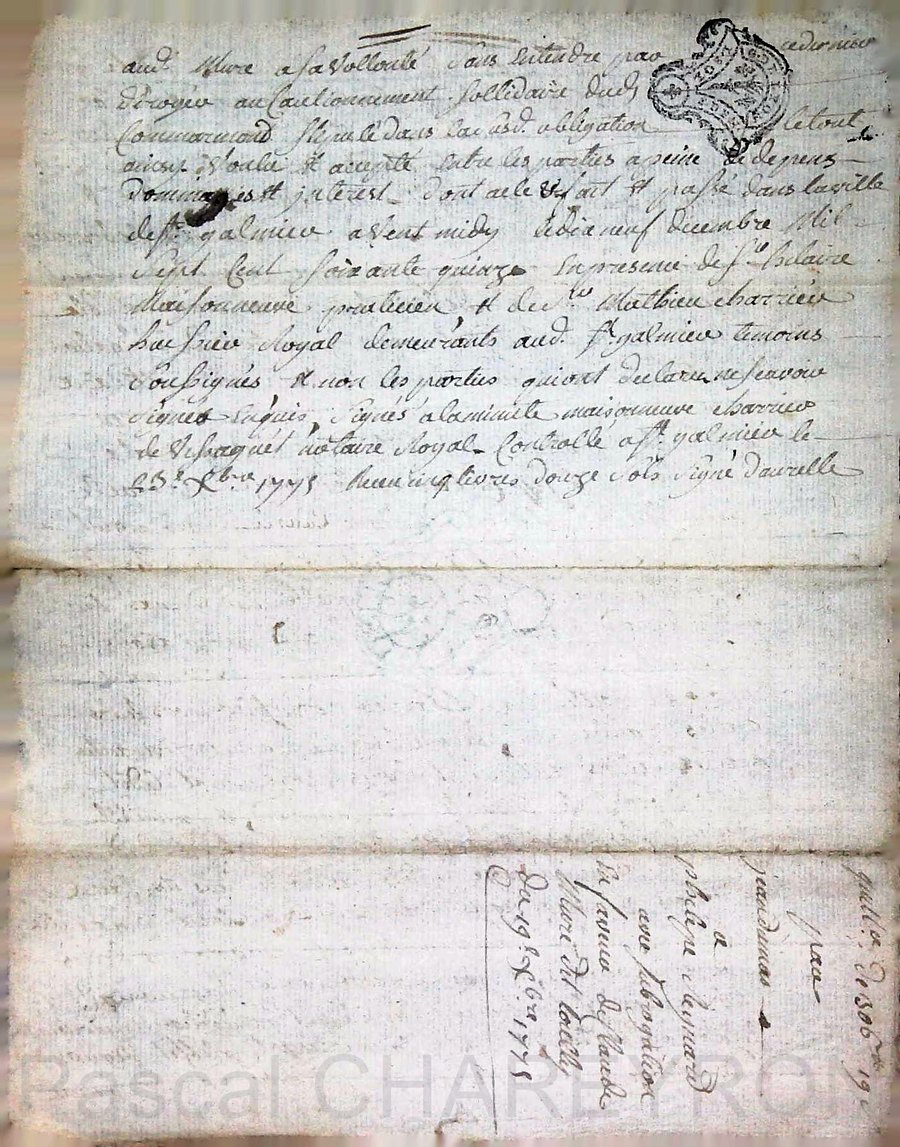 aud. Mure a sa vollonté sans entendre par cedernier
déroger au Cautionnement sollidaire dud.
Commarmond stipulé dans lad. obligation le tout
ainsy voulu et accepté entre les parties a peine de depens
dommages et interest dont acte fait et passé dans la ville
de st. galmier avent midy le dix neuf decembre Mil
Sept Cent soixante quinze en presence de sr. hilaire
Maisonneuve praticien et de Mathieu charrier
huissier Royal demeurants aud. st. galmier temoins
soussignés et non les parties qui ont declaré ne scavoir
signer enquis, signés a la minute maisonneuve charrier
notaire Royal Controllé a st. galmier le
23e Xbre 1775 Recu cinq livres douze sols signé daurelle
quitce. de 306
par
jean dumas
a
philipe Reynard
avec subrogation
en faveur de Claude
Mure dit
du 19e Xbre 1775
Pascal CHAREYRON